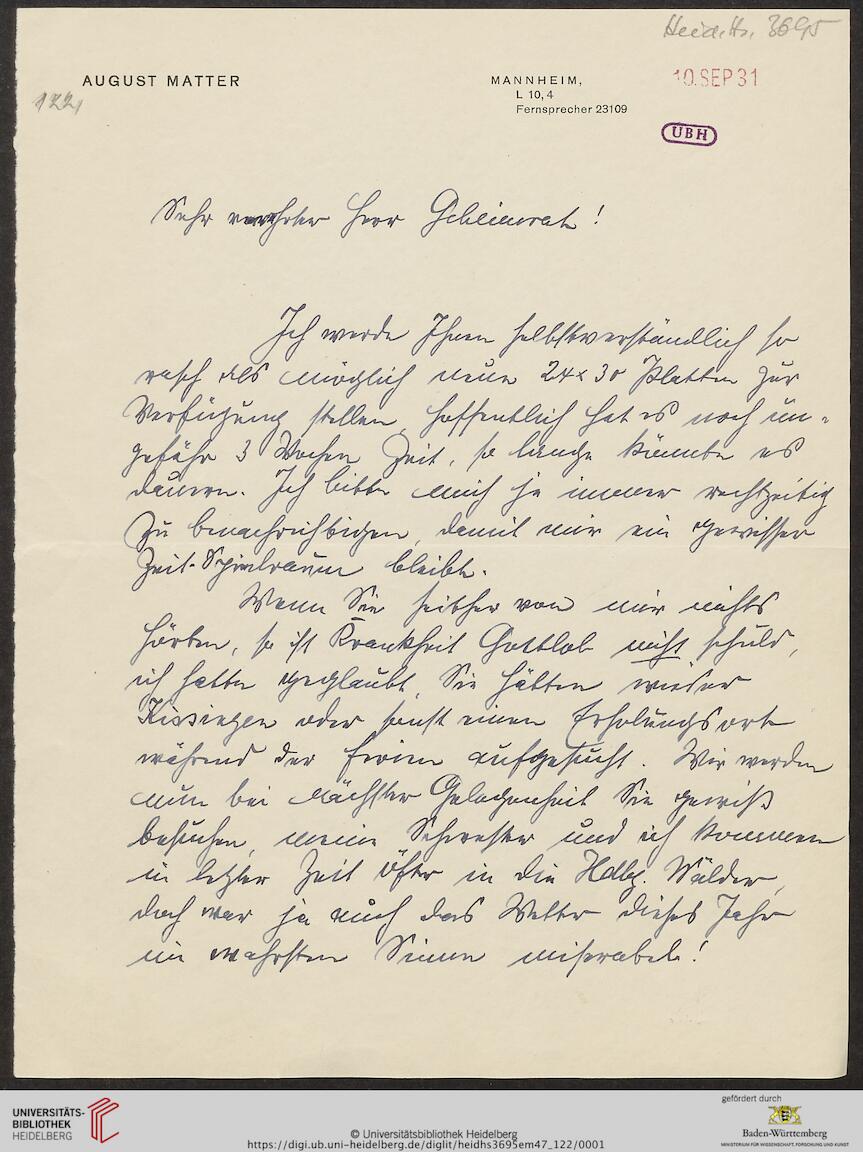 Heid. Hs. 3695
AUGUST MATTER
MANNHEIM,
L 10, 4
Fernsprecher 23109
10. SEP 31
122,
UBH
Sehr verehrter Herr Geheimrat!
Ich werde Ihnen selbstverständlich so
rasch als möglich neue 24 x 30 Platten zur
Verfügung stellen, hoffentlich hat es noch un-
gefähr 3 Wochen Zeit, so lange könnte es
dauern. Ich bitte mich ja immer rechtzeitig
zu benachrichtigen, damit mir ein gewisser
Zeit-Spielraum bleibt.
Wenn Sie seither von mir nichts
hörten, so ist Krankheit Gottlob nicht schuld,
ich hatte geglaubt, Sie hätten wieder
Kissingen oder sonst einen Erholungsort
während der Ferien aufgesucht. Wir werden
nun bei nächster Gelegenheit Sie gewiß
besuchen, meine Schwester und ich kommen
in letzter Zeit öfter in die Hdlbg. Wälder,
doch war ja auch das Wetter dieses Jahr
im wahrsten Sinne miserabel!
UNIVERSITÄTS-
BIBLIOTHEK
HEIDELBERG
© Universitätsbibliothek Heidelberg
https://digi.ub.uni-heidelberg.de/diglit/heidhs3695em47_122/0001
gefördert durch
Baden-Württemberg
MINISTERIUM FÜR WISSENSCHAFT, FORSCHUNG UND KUNST